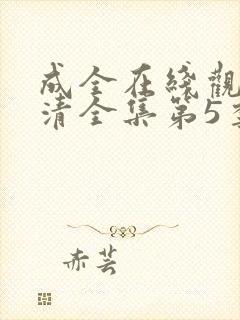 成全在綫觀
清全集第5季
赤芸